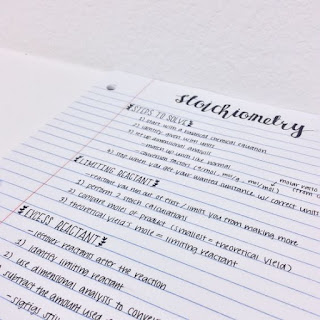 stoichiometry
STEPS TO SOLVE
1) start with a balanced chemical equation
2) identify given with units
3) set up dimensional analysis
- match up units like normal
- conversion factors (g/mol, mol/g, mol/mol)
molar ratio
4) stop when you get your wanted substance w/ correct units
LIMITING REACTANT
- reactant you run out of first / limits you from making more
2) perform 2 math calculations
2) compare moles of product (smallest = theoretical yield)
3) theoretical yield's mole = limiting reactant
EXCESS REACTANT
- leftover reactant after the reaction
1) identify limiting reactant
2) use dimensional analysis to
subtract the amount used
- sigfigs still